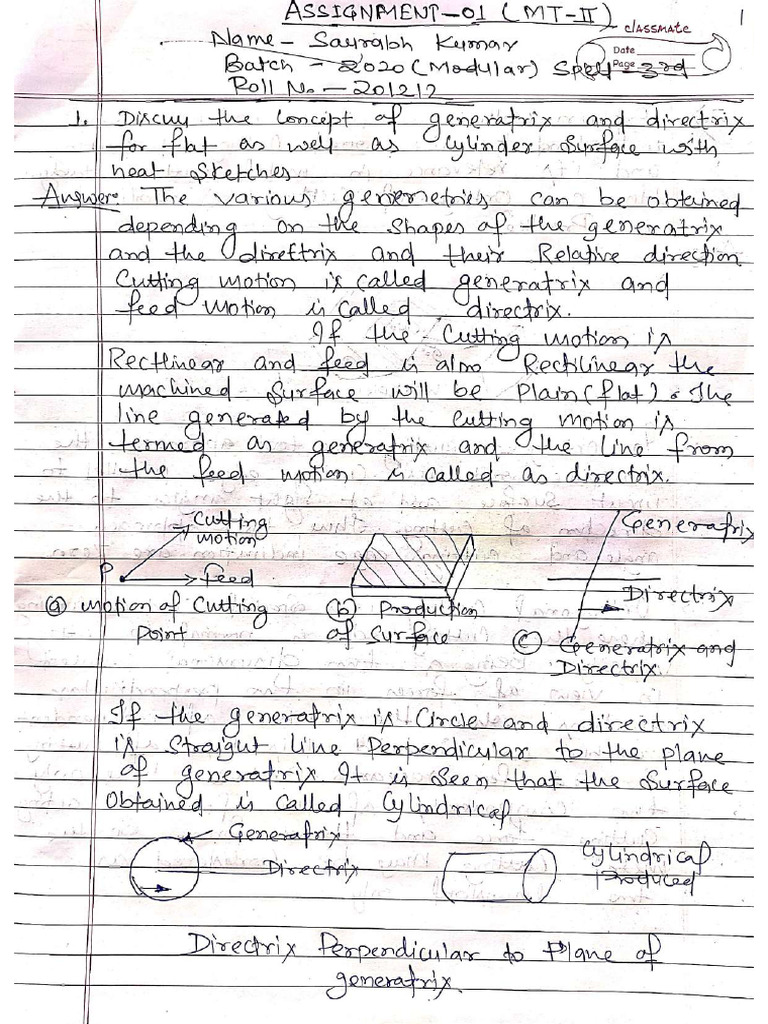 ASSIGNMENT-01 (MT-II)
1
classmate
Date
Page
Name - Saurabh Kumar
Batch - 2020 (Modular) Spell-3rd
Roll No. - 201212
1. Discuss the concept of generatrix and directrix
for flat as well as Cylinder Surface with
neat Sketches
Answer: The various geniemetries can be obtained
depending on the shapes of the generatrix
and the direftrix and their Relative direction
Cutting motion is called generatrix and
feed motion is called directrix.
If the Cutting motion is
Rectlinear and feed is also Rectilinear the
machined Surface will be Plain (flat). The
line generated by the cutting motion is
termed as generatrix and the line from
the feed motion is called as directrix.
Cutting
motion
P
feed
Generatrix
Directrix
(a) Motion of Cutting
Point
(b) Production
of Surface
(c) Generatrix and
Directrix.
If the generatrix is Circle and directrix
is Straigut line Perpendicular to the plane
of generatrix. It is Seen that the Surface
Obtained is called Cylindrical
Generatrix
Directrix
Cylindrical
Produced
Directrix Perpendicular to Plane of
generatrix.